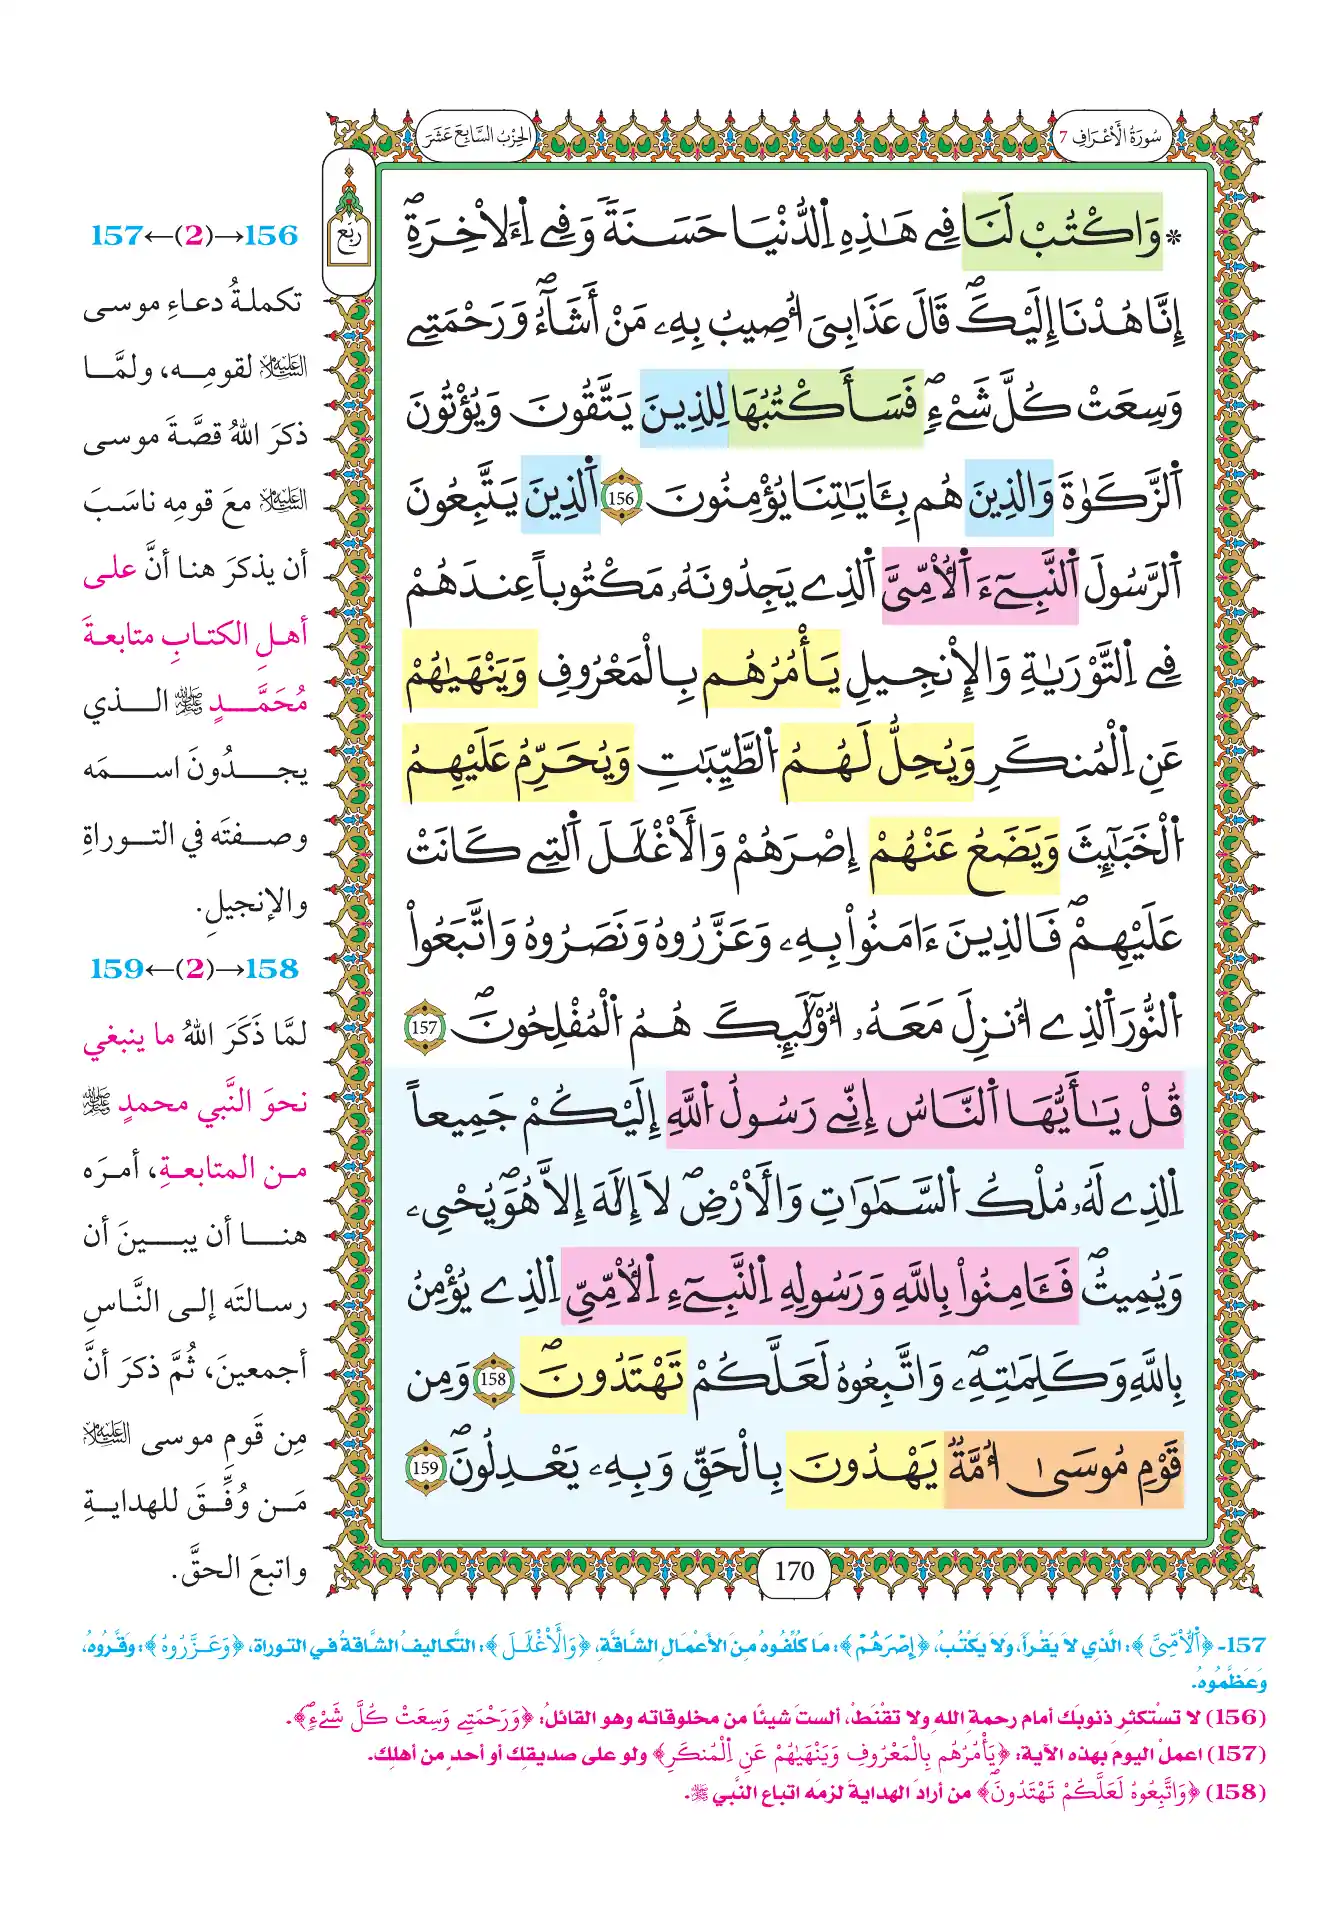 سُورَةُ الْأَعْرَافِ 7
الحِزْبُ السَّابِعَ عَشَرَ
رُبُع
* وَاكْتُبْ لَنَا فِے هَٰذِهِ اِ۬لدُّنْيَا حَسَنَةٗ وَفِے اِ۬لَاخِرَةِۖ
إِنَّا هُدْنَا إِلَيْكَۖ قَالَ عَذَابِيَ أُصِيبُ بِهِۦ مَنْ أَشَآءُۖ وَرَحْمَتِے
وَسِعَتْ كُلَّ شَےْءٖۖ فَسَأَكْتُبُهَا لِلذِينَ يَتَّقُونَ وَيُؤْتُونَ
اَ۬لزَّكَوٰةَ وَالذِينَ هُم بِـَٔايَٰتِنَا يُؤْمِنُونَ 156 اَ۬لذِينَ يَتَّبِعُونَ
اَ۬لرَّسُولَ اَ۬لنَّبِےٓءَ اَ۬لُامِّيَّ اَ۬لذِے يَجِدُونَهُۥ مَكْتُوباً عِندَهُمْ
فِے اِ۬لتَّوْرَيٰةِ وَالِانجِيلِ يَأْمُرُهُم بِالْمَعْرُوفِ وَيَنْهَيٰهُمْ
عَنِ اِ۬لْمُنكَرِ وَيُحِلُّ لَهُمُ اُ۬لطَّيِّبَٰتِ وَيُحَرِّمُ عَلَيْهِمُ
اُ۬لْخَبَٰٓئِثَ وَيَضَعُ عَنْهُمْ إِصْرَهُمْ وَالَاغْلَٰلَ اَ۬لتِے كَانَتْ
عَلَيْهِمْۖ فَالذِينَ ءَامَنُواْ بِهِۦ وَعَزَّرُوهُ وَنَصَرُوهُ وَاتَّبَعُواْ
اُ۬لنُّورَ اَ۬لذِے أُنزِلَ مَعَهُۥ أُوْلَٰٓئِكَ هُمُ اُ۬لْمُفْلِحُونَۖ 157
قُلْ يَٰٓأَيُّهَا اَ۬لنَّاسُ إِنِّے رَسُولُ اُ۬للَّهِ إِلَيْكُمْ جَمِيعاً
اِ۬لذِے لَهُۥ مُلْكُ اُ۬لسَّمَٰوَٰتِ وَالَارْضِۖ لَا إِلَٰهَ إِلَّا هُوَۖ يُحْيِۦ
وَيُمِيتُۖ فَـَٔامِنُواْ بِاللَّهِ وَرَسُولِهِ اِ۬لنَّبِےٓءِ اِ۬لُامِّيِّ اِ۬لذِے يُؤْمِنُ
بِاللَّهِ وَكَلِمَٰتِهِۦۖ وَاتَّبِعُوهُ لَعَلَّكُمْ تَهْتَدُونَۖ 158 وَمِن
قَوْمِ مُوسَىٰٓ أُمَّةٞ يَهْدُونَ بِالْحَقِّ وَبِهِۦ يَعْدِلُونَۖ 159
170
156→(2)←157
تكملةُ دعاءِ موسى
عليه السلام لقومِه، ولمَّا
ذكرَ اللهُ قصَّةَ موسى
عليه السلام معَ قومِه ناسَبَ
أن يذكرَ هنا أنَّ على
أهلِ الكتابِ متابعةَ
مُحَمَّدٍ ﷺ الذي
يجدُونَ اسمَه
وصفتَه في التوراةِ
والإنجيلِ.
158→(2)←159
لمَّا ذَكَرَ اللهُ ما ينبغي
نحوَ النَّبي محمدٍ ﷺ
من المتابعةِ، أمرَه
هنا أن يبينَ أن
رسالتَه إلى النَّاسِ
أجمعينَ، ثُمَّ ذكرَ أنَّ
مِن قَومِ موسى عليه السلام
مَن وُفِّقَ للهدايةِ
واتبعَ الحقَّ.
157- ﴿اَ۬لُامِّيَّ﴾: الَّذِي لاَ يَقْرَأ، وَلاَ يَكْتُبُ، ﴿إِصْرَهُمْ﴾: مَا كُلِّفُوهُ مِنَ الأعْمَالِ الشَّاقَّةِ، ﴿وَالَاغْلَٰلَ﴾: التَّكَاليفُ الشَّاقةُ في التوراةِ، ﴿وَعَزَّرُوهُ﴾: وَقَّرُوهُ،
وَعَظَّمُوهُ.
(156) لا تستكثرِ ذنوبَك أمام رحمةِ اللهِ ولا تقْنَطْ، ألستَ شيئًا من مخلوقاته وهو القائلُ: ﴿وَرَحْمَتِے وَسِعَتْ كُلَّ شَےْءٖۖ﴾.
(157) اعملْ اليومَ بهذه الآية: ﴿يَأْمُرُهُم بِالْمَعْرُوفِ وَيَنْهَيٰهُمْ عَنِ اِ۬لْمُنكَرِ﴾ ولو على صديقِك أو أحدٍ من أهلِك.
(158) ﴿وَاتَّبِعُوهُ لَعَلَّكُمْ تَهْتَدُونَۖ﴾ من أرادَ الهدايةَ لزمَه اتباع النَّبي ﷺ.